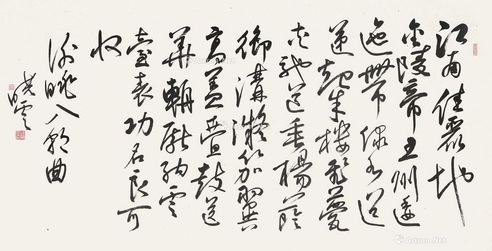 江南佳麗地
金陵帝王州逶
迤帶綠水迢
遞起朱樓飛甍
夾馳道垂楊蔭
御溝凝笳翼
高蓋疊鼓送
華輈獻納雲
臺表功名良可
收
謝朓入朝曲
曉雲